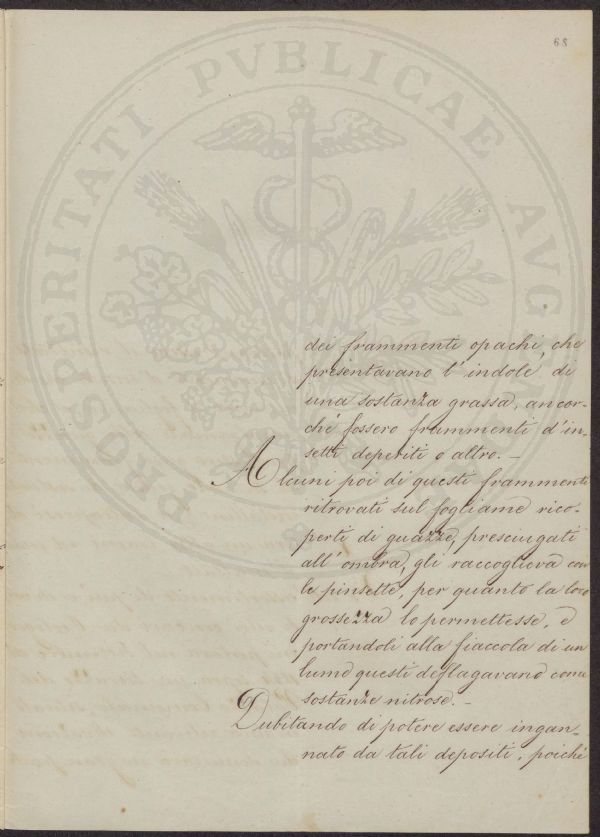 68
PROSPERITATI PVBLICAE AVG
dei frammenti opachi, che
presentavano l'indole di
una sostanza grassa, ancor-
ché fossero frammenti d'in-
setti deperiti o altro. –
Alcuni poi di questi frammenti
ritrovati sul fogliame rico-
perti di guazze, presciugati
all'ombra, gli raccoglieva con
le pinsette, per quanto la loro
grossezza lo permettesse, e
portandoli alla fiaccola di un
lume questi deflagavano come
sostanze nitrose. –
Dubitando di potere essere ingan-
nato da tali depositi, poiché